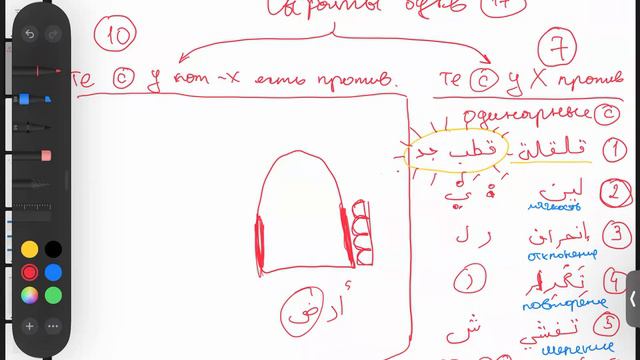 Сифаты букв 17
10
7
те с у кот-х есть против.
те с у Х против
одинарные с
1 قلقلة قطب جد
2 لين و ي
мягкость
3 إنحراف ر ل
отклонение
4 تكرار ر
повторение
5 تفشي ش
أرض